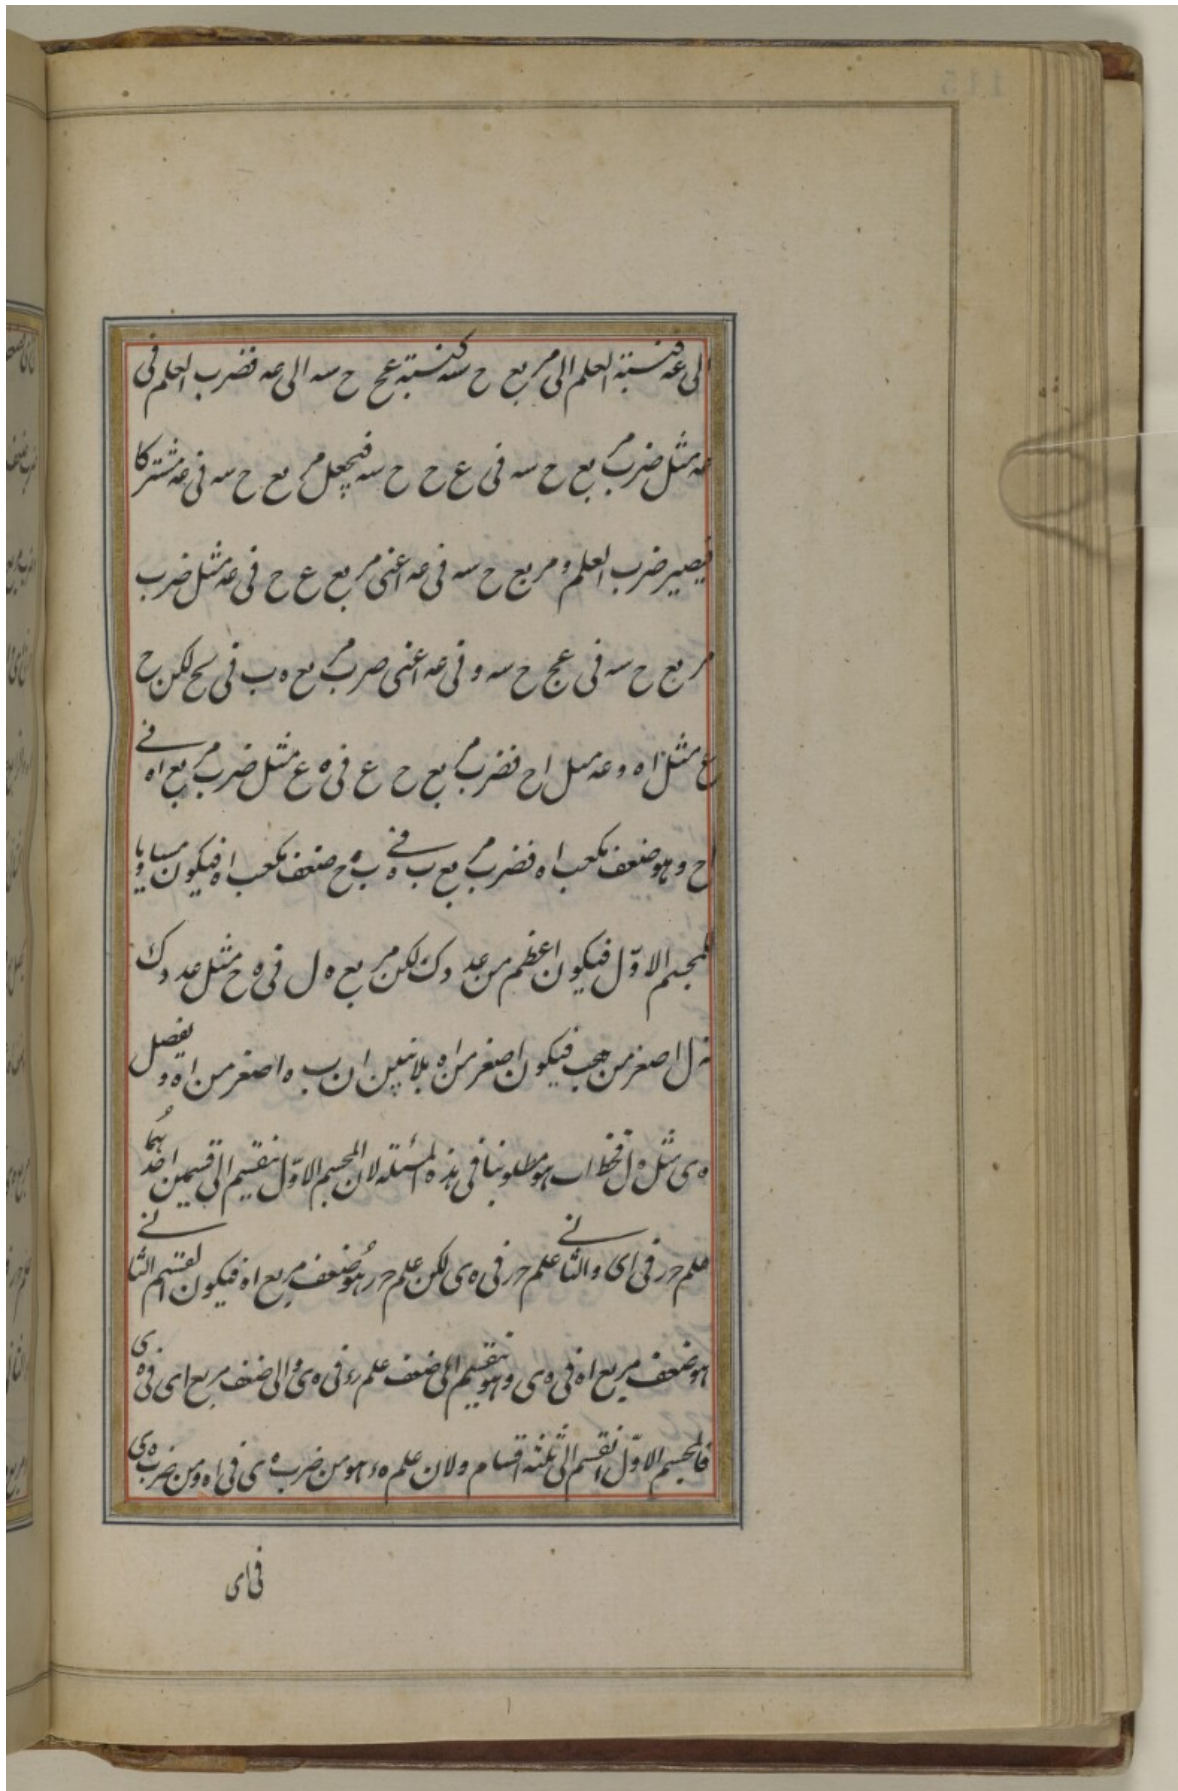 الى عه فنسبة العلم الى مربع ح سه كنسبة عح ح سه الى عه فضرب العلم فى
عه مثل ضرب مربع ح سه فى ع ح ح سه فيجعل مربع ح سه فى عه مشتركا
فيصير ضرب العلم و مربع ح سه فى عه اعنى مربع ع ح فى عه مثل ضرب
مربع ح سه فى عح ح سه و فى عه اعنى ضرب مربع ه ب فى لكن ح
ع مثل اه و عه مثل اح فضرب مربع ح ع فى ه ع مثل ضرب مربع اه فى
اح و هو ضعف مكعب اه فضرب مربع ب ه فى ب ح ضعف مكعب اه فيكون مساويا
للمجسم الاول فيكون اعظم من عدد ك لكن مربع ه ل فى ه ح مثل عدد ك
ه ل اصغر من فيكون اصغر من اه بلا نبين ان ب ه اصغر من اه و يفصل
ه ى مثل ه ل فخط اب هو مطلوبنا فى هذه المسئلة لان المجسم الاول ينقسم الى قسمين احدهما
علم حر فى اى والثانى علم حر فى ه ى لكن علم حر هو ضعف مربع اه فيكون لقسم الثانى
هو ضعف مربع اه فى ه ى و هو ينقسم الى ضعف علم فى ه ى و الى ضعف مربع اى فى ه ى
فالمجسم الاول انقسم الى ثلثة اقسام و لان علم هو من ضرب ه ى فى اه و من ضرب ه ى
فى اى
115